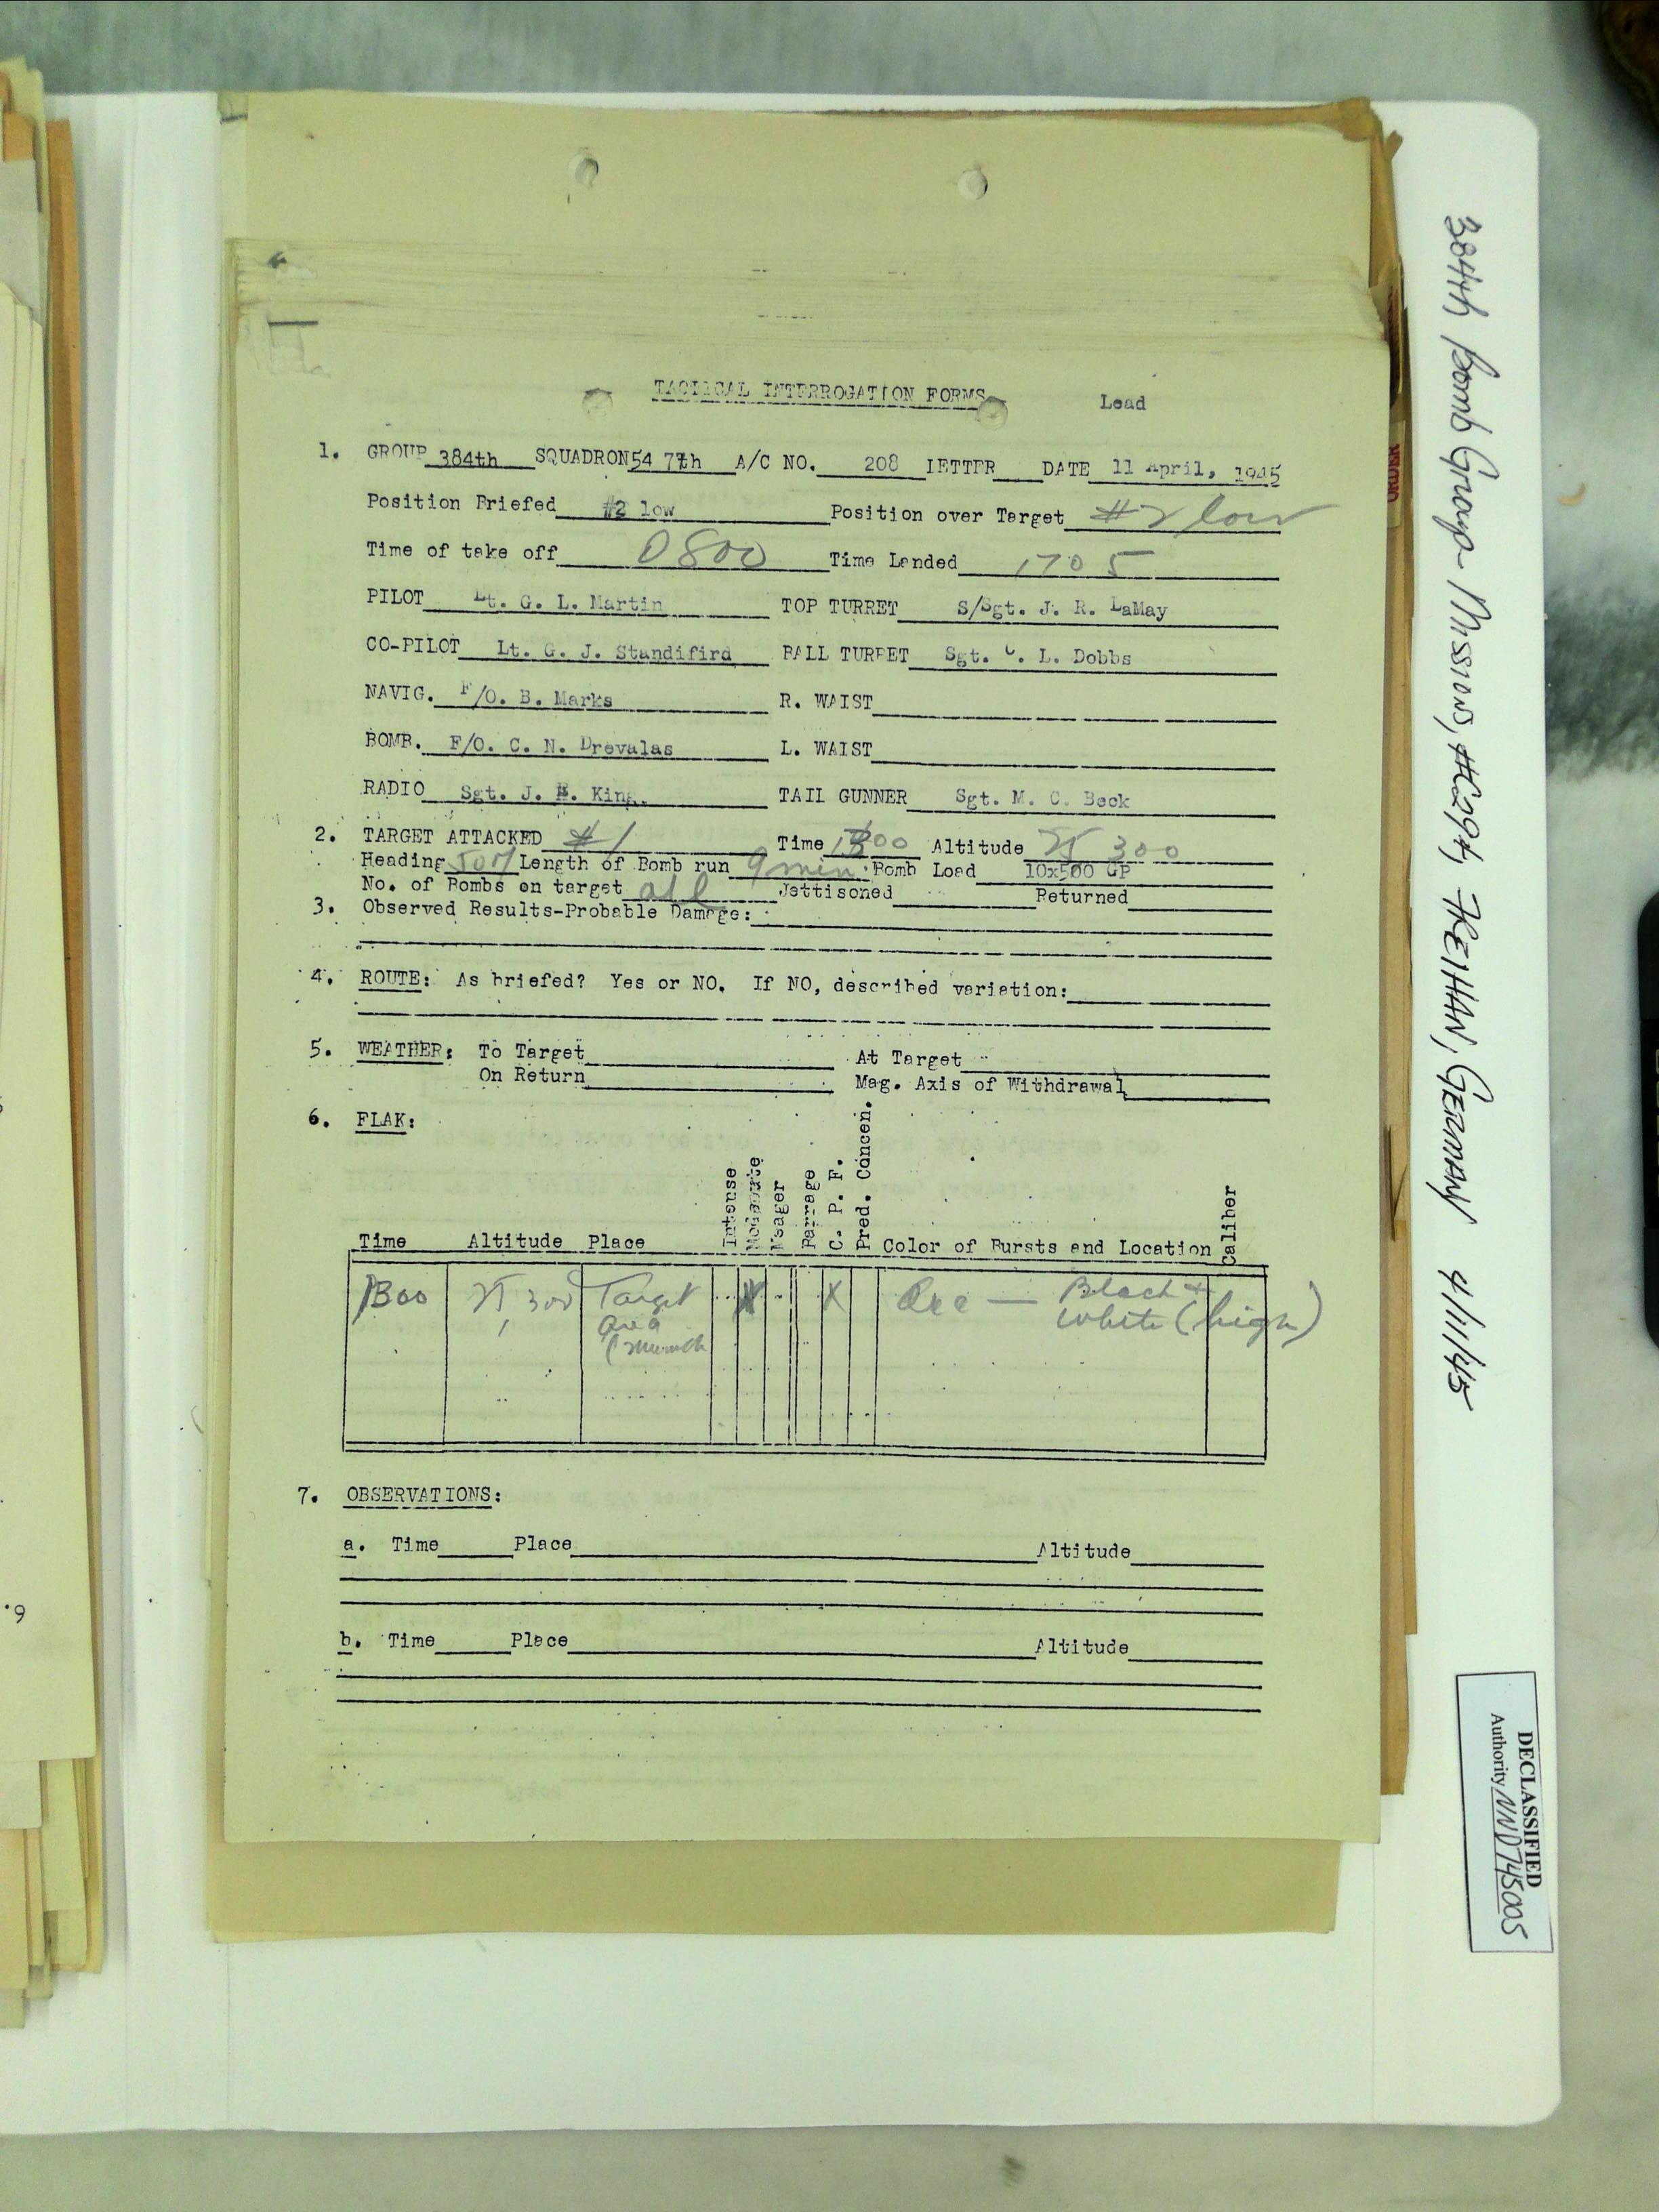 TACTICAL INTERROGATION FORMS
Lead
1. GROUP 384th SQUADRON 547th A/C NO. 208 LETTER DATE 11 April, 1945
Position Briefed #2 low Position over Target #2 low
Time of take off 0800 Time Landed 1705
PILOT Lt. G. L. Martin TOP TURRET S/Sgt. J. R. LaMay
CO-PILOT Lt. G. J. Standifird BALL TURRET Sgt. C. L. Dobbs
NAVIG. F/O. B. Marks R. WAIST
BOMB. F/O. C. N. Drevalas L. WAIST
RADIO Sgt. J. E. King. TAIL GUNNER Sgt. M. C. Beck
2. TARGET ATTACKED #1 Time 1300 Altitude 25 300
Heading Length of Bomb run 9 min. Bomb Load 10x500 GP
No. of Bombs on target all Jettisoned Returned
3. Observed Results-Probable Damage:
4. ROUTE: As briefed? Yes or NO. If NO, described variation:
5. WEATHER: To Target At Target
On Return Mag. Axis of Withdrawal
6. FLAK:
Time Altitude Place Intense Moderate Meager Barrage C. P. F. Pred. Concen. Color of Bursts and Location Caliber
1300 25 300 Target X X Acc — Black +
area white (high)
(Munich
7. OBSERVATIONS:
a. Time Place Altitude
b. Time Place Altitude
384th Bomb Group Missions, #294, FREIHAN, GERMANY 4/11/45
DECLASSIFIED
Authority NND745005
ORDER
6.